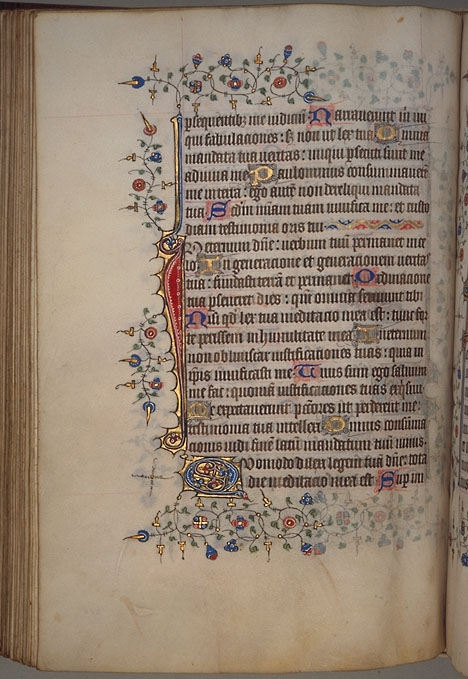 psequentibz me iudiciū Narrauerūt m̄ ini
qui fabulaciones : s; non ut lex tua Omnia
mandata tua ueritas : iniqui psecuti sunt me
adiuua me Paulominus consummauerūt
me in terra : ego autē non dereliqui mandata
tua Scdm miam tuam uiuifica me : et custo
diam testimonia oris tui
In eternum dn̄e : uerbum tuū permanet in ce
lo In generacione et generacionem uerita
tua : fundasti terrā et permanet Ordinacione
tua pseuerat dies : qm̄ omnia seruiunt tibi
Nisi qd lex tua meditacio mea est : tunc for
te periissem in humilitate mea In eternum
non obliuiscar iustificaciones tuas : quia in
ipīs uiuificasti me Tuus sum ego saluum
me fac : quoniam iustificaciones tuas exqsiui
Me expectauerunt pctores ut perderent me
testimonia tua intellexi Omnis consūma
cionis uidi finē latū mandatum tuū nimis
Quomodo dilexi legem tuā dn̄e : tota
die meditacio mea est Sup ini